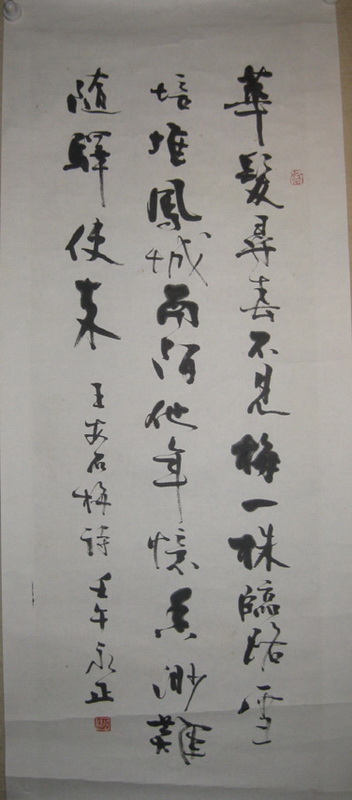 華髮尋春不見梅一株臨路雪
培堆鳳城南陌他年憶香渺難
隨驛使來
王安石梅詩 壬午永正